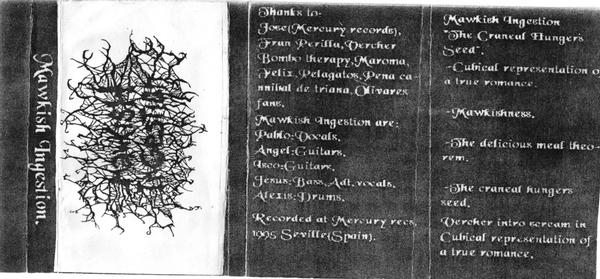 Mawkish Ingestion.
Thanks to-
Jose(Mercury records),
Fran Perilla,Vercher
Bombo therapy,Maroma,
Felix,Pelagatos,Pena ca-
nnibal de triana,Olivares
fans.
Mawkish Ingestion are:
Pablo:Vocals,
Angel:Guitars,
Isco:Guitars,
Jesus:Bass,Adt.vocals,
Alexis:Drums.
Recorded at Mercury recs,
1995 Seville(Spain).
Mawkish Ingestion
"The Craneal Hungers
Seed".
-Cubical representation of
a true romance.
-Mawkishness.
-The delicious meal theo-
rem.
-The craneal hungers
seed.
Vercher intro scream in
Cubical representation of
a true romance.